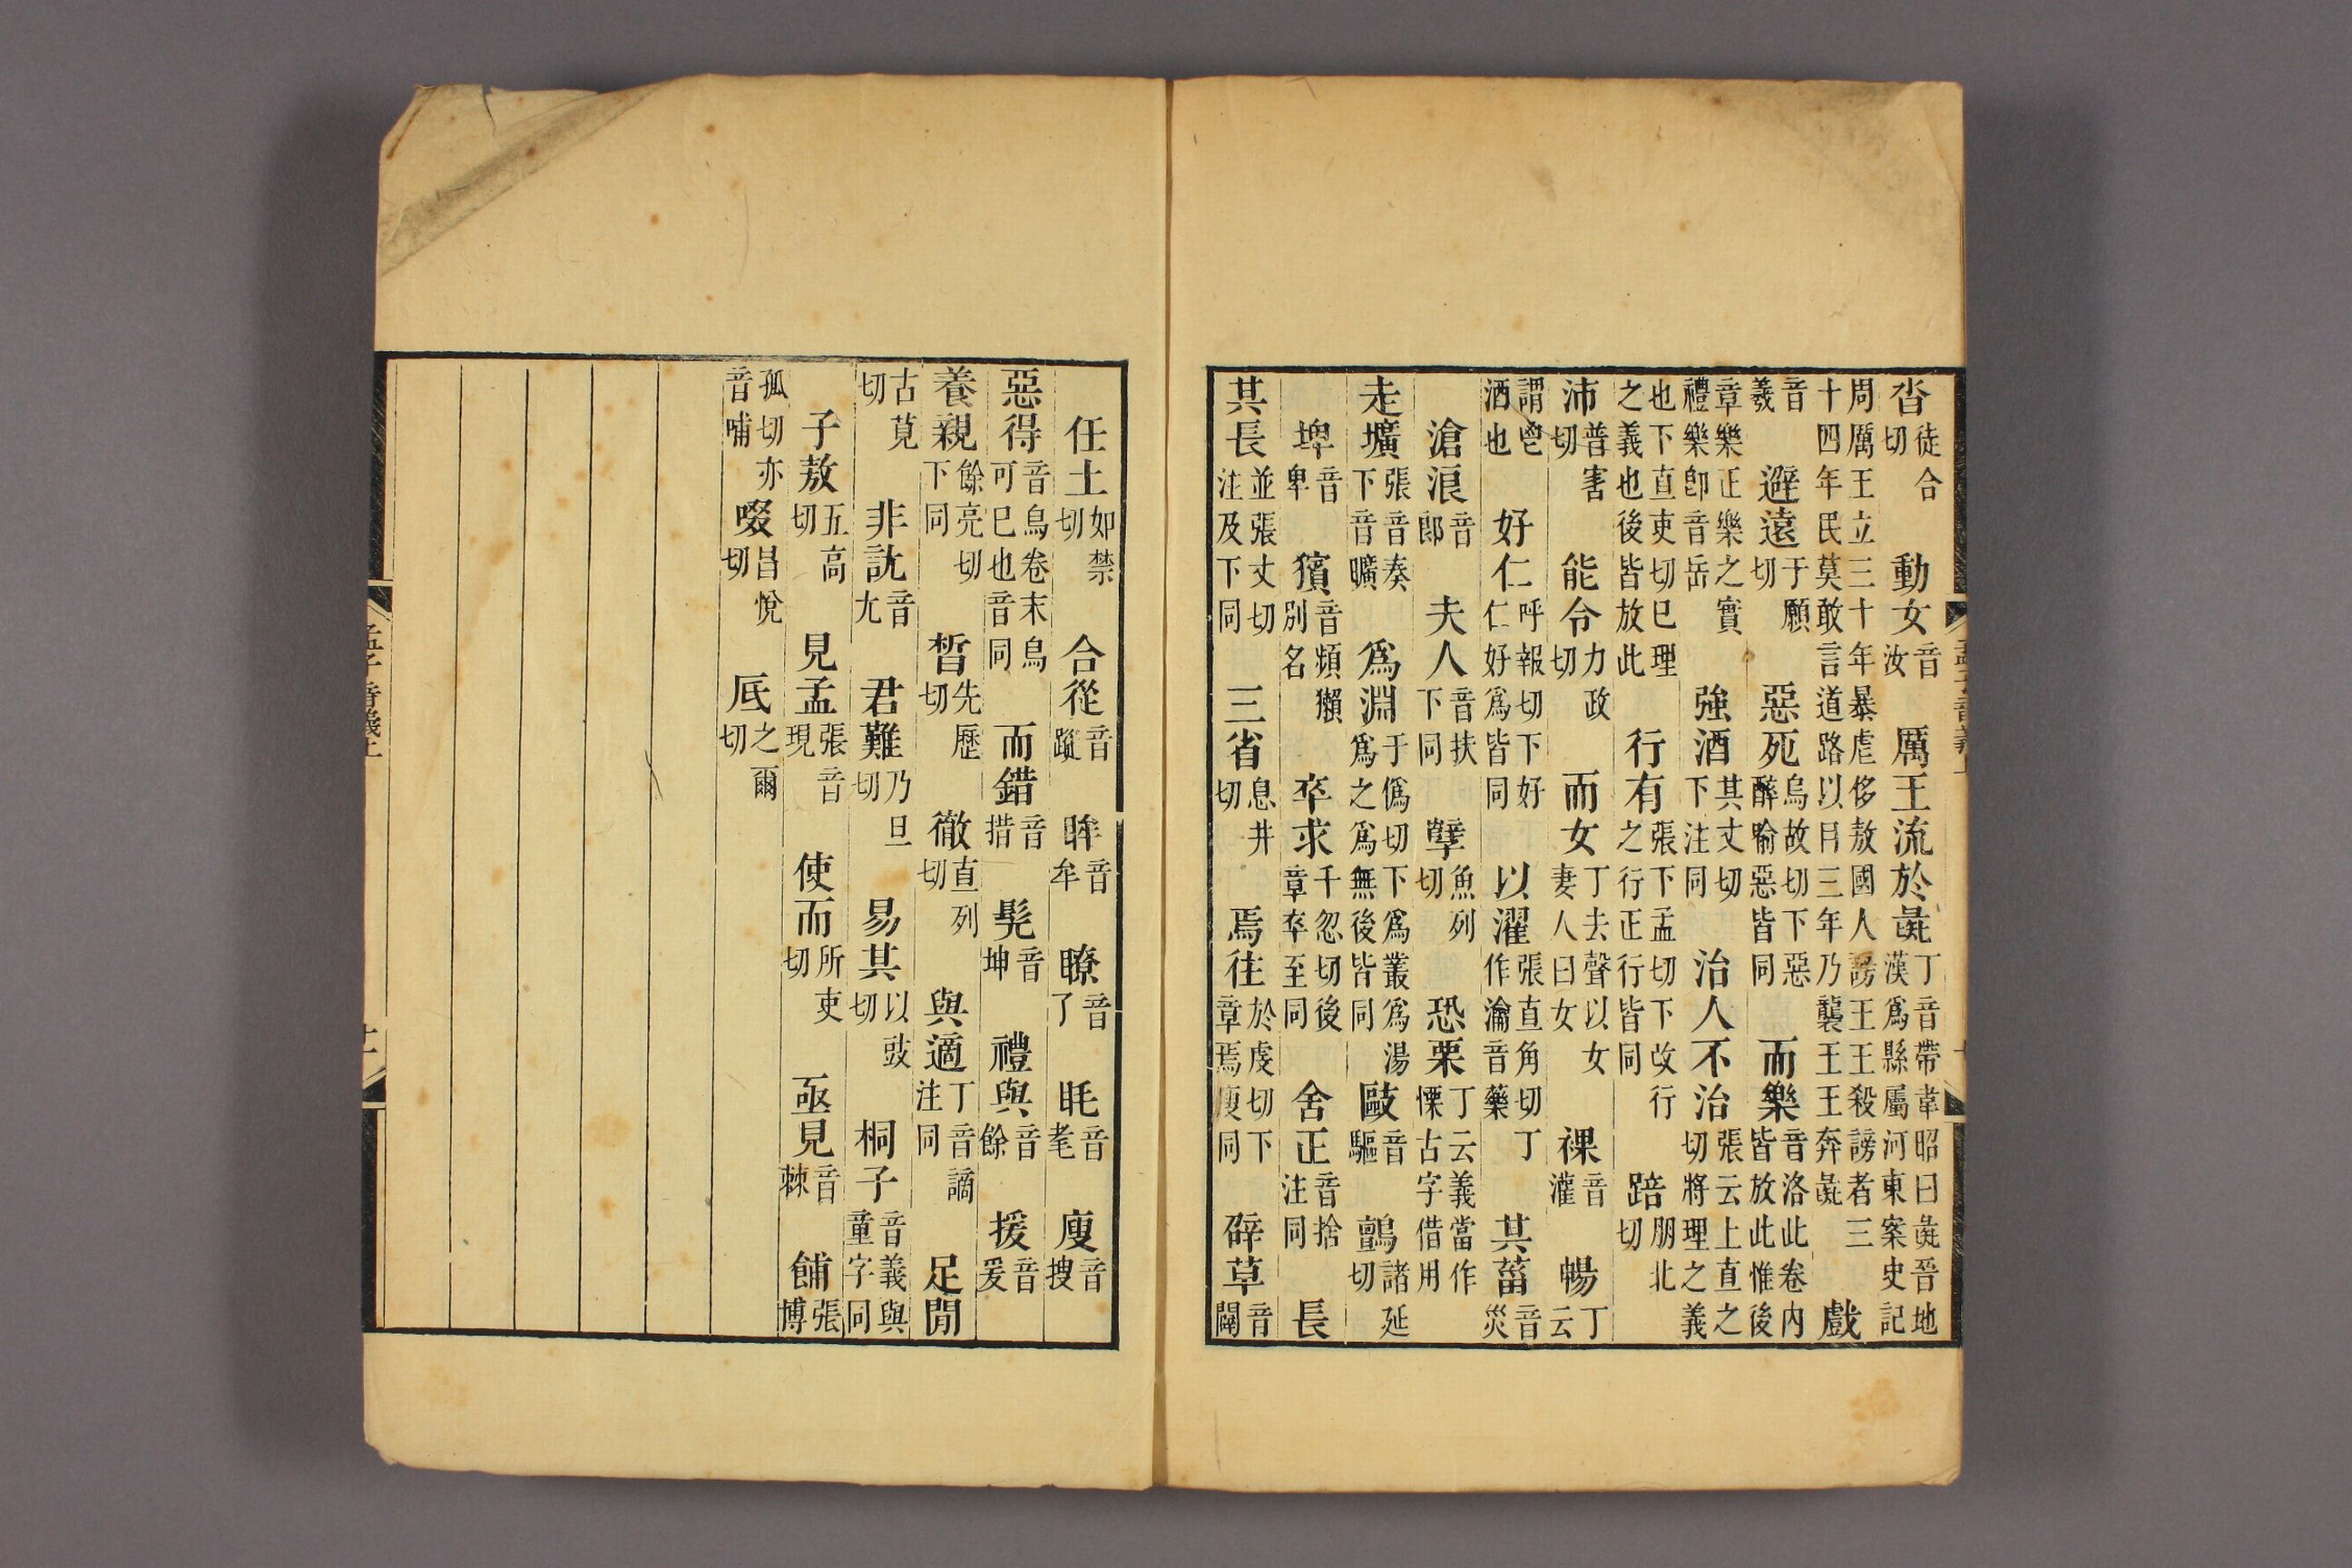 沓徒合切動女音汝厲王流於彘丁音帶韋昭曰彘晉地漢爲縣屬河東案史記
周厲王立三十年暴虐侈敖國人謗王王殺謗者三十四年民莫敢言道路以目三年乃襲王王奔彘戲
音羲避遠于願切惡死烏故切下惡醉喻惡皆同而樂音洛此卷內皆放此惟後
章樂正樂之實禮樂卽音岳強酒其丈切下注同治人不治張云上直之切將理之義
也下直吏切巳理之義也後皆放此行有張下孟切下改行之行正行皆同踣朋北切
沛普害切能令力政切而女丁去聲以女妻人曰女祼音灌暢丁云
謂鬯酒也好仁呼報切下好仁好爲皆同以濯張直角切丁作瀹音藥其菑音災
滄浪音郎夫人音扶下同孽魚列切恐栗丁云義當作慄古字借用
走壙張音奏下音曠爲淵于僞切下爲叢爲湯爲之爲無後皆同敺音驅鸇諸延切
埤音卑獱音頻獺別名卒求千忽切後章卒至同舍正音捨注同長
其長並張丈切注及下同三省息井切焉往於虔切下章焉廋同辟草音闢
任土如禁切合從音蹤眸音牟瞭音了眊音耄廋音搜
惡得音烏卷末烏可巳也音同而錯音措髡音坤禮與音餘援音爰
養親餘亮切下同晳先歷切徹直列切與適丁音謫注同足閒
古莧切非訧音尤君難乃旦切易其以豉切桐子音義與童字同
子敖五高切見孟張音現使而所吏切亟見音棘餔張博
孤切亦音哺啜昌悅切厎之爾切
孟子音義上